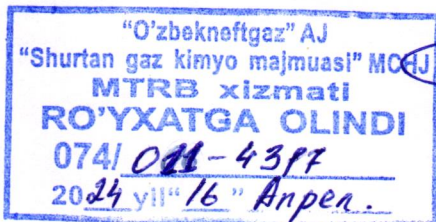 "O'zbekneftgaz" AJ
"Shurtan gaz kimyo majmuasi" MCHJ
MTRB xizmati
RO'YXATGA OLINDI
074/ 011-4387
2024 yil "16" Апрел.